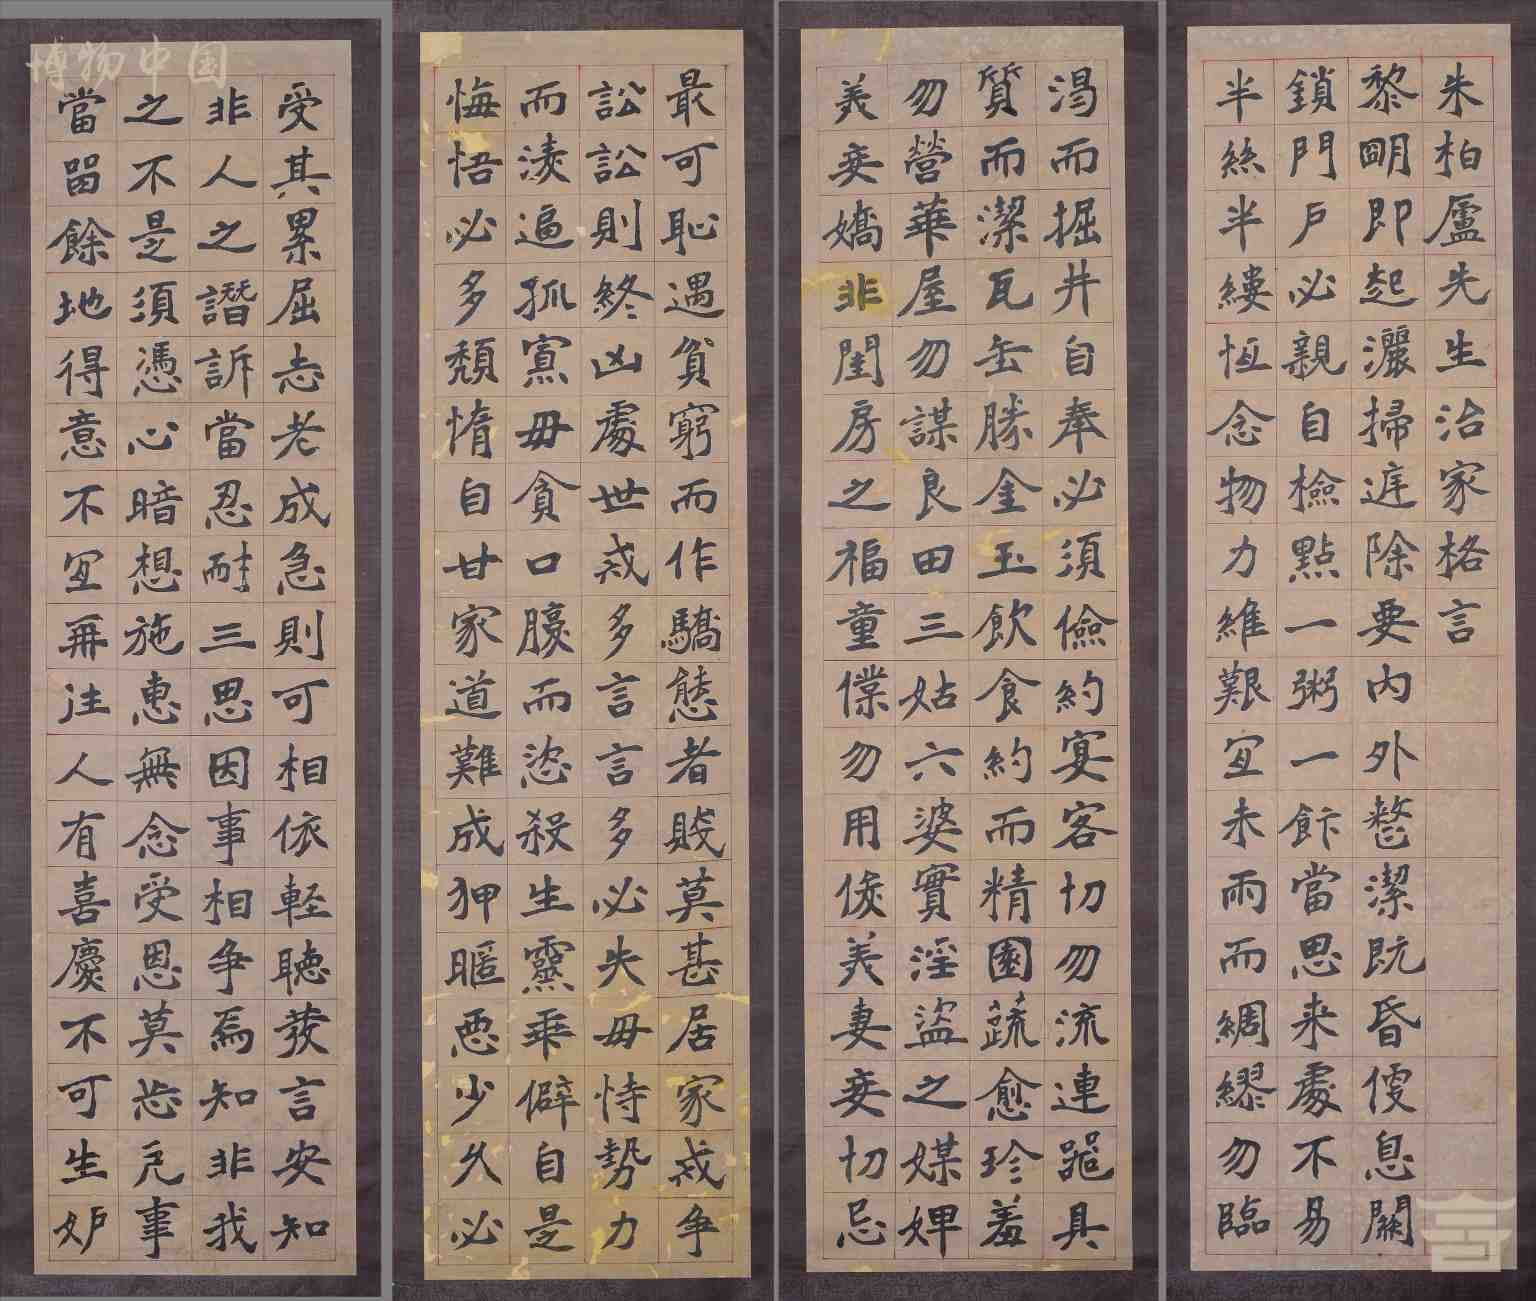 朱柏廬先生治家格言
黎明即起灑掃庭除要內外整潔既昏便息關
鎖門戶必親自檢點一粥一飰當思来處不易
半絲半縷恆念物力維艱宜未雨而綢繆勿臨
渴而掘井自奉必須儉約宴客切勿流連器具
質而潔瓦缶勝金玉飲食約而精園蔬愈珍羞
勿營華屋勿謀良田三姑六婆實淫盜之媒婢
美妾嬌非閨房之福童僕勿用俊美妻妾切忌
最可恥遇貧窮而作驕態者賤莫甚居家戒争
訟訟則終凶處世戒多言言多必失毋恃勢力
而淩逼孤寡毋貪口腹而恣殺生靈乖僻自是
悔悟必多頹惰自甘家道難成狎暱惡少久必
受其累屈志老成急則可相依輕聽發言安知
非人之譖訴當忍耐三思因事相争焉知非我
之不是須憑心暗想施惠無念受恩莫忘凡事
當留餘地得意不宜再往人有喜慶不可生妒
博物中国